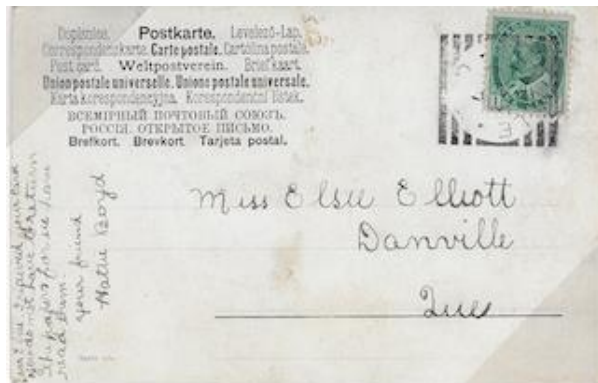 Dopisnice. Postkarte. Levelező-Lap.
Correspondenzkarte. Carte postale. Cartolina postale.
Post card. Weltpostverein. Briefkaart.
Union postale universelle. Unione postale universale.
Karta korespondencyjna. Korespondenční lístek.
ВСЕМІРНЫЙ ПОЧТОВЫЙ СОЮЗЪ.
РОССІЯ. ОТКРЫТОЕ ПИСЬМО.
Brefkort. Brevkort. Tarjeta postal.
Miss Elsie Elliott
Danville
Que
received your card
do not have to return
the papers for we have
read them
your friend
Hattie Boyd